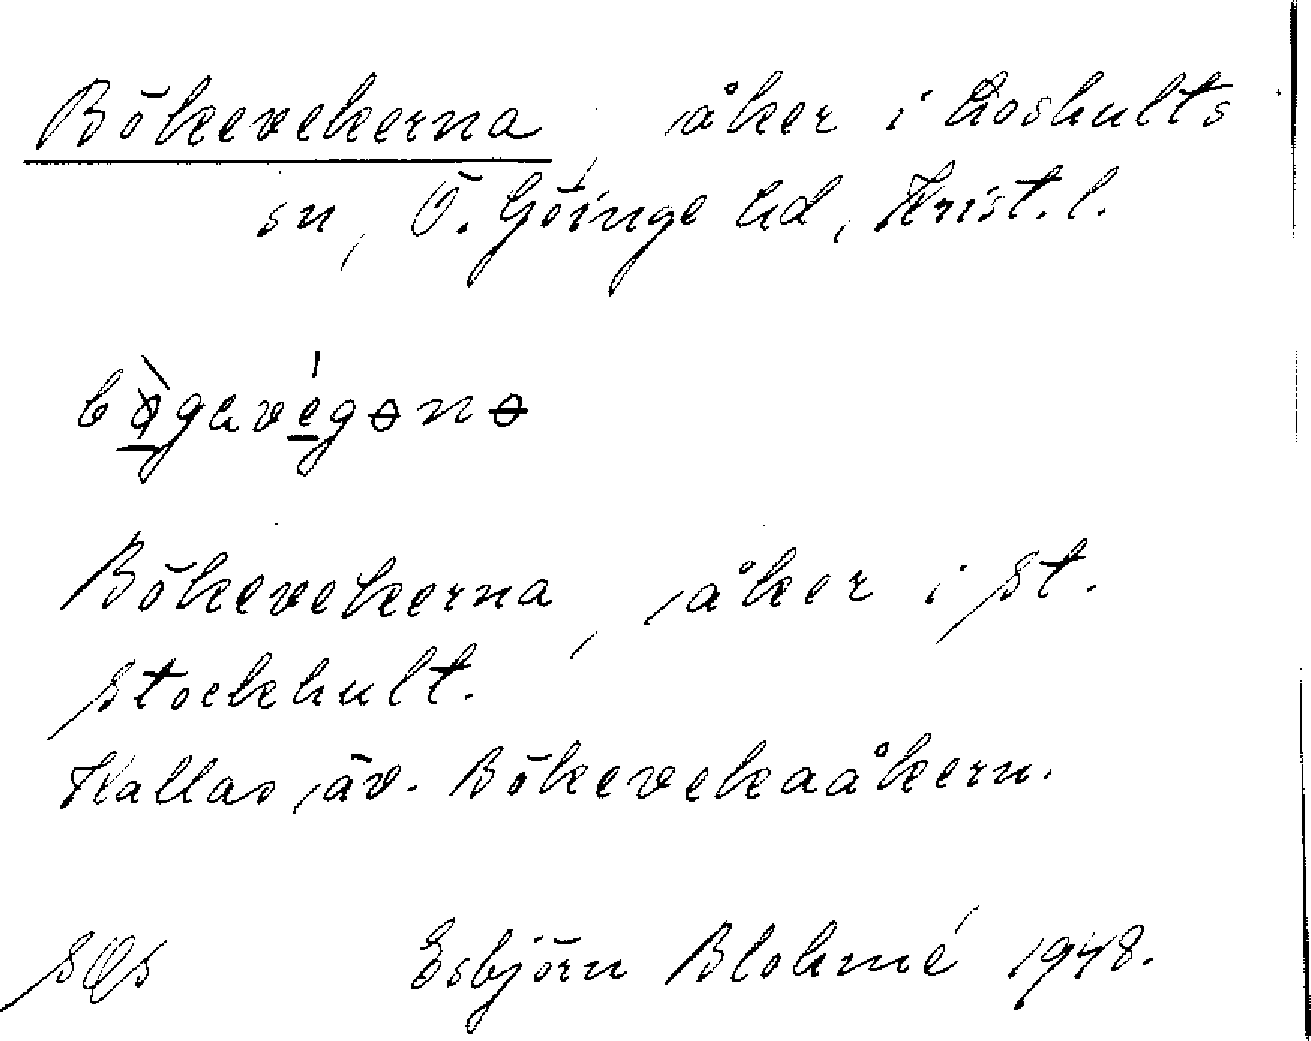 Bökevekerna, åker i Loshults
sn, Ö. Göinge hd, Krist. l.
Bökevekerna, åker i St.
Stockhult.
Kallas äv. Bökevekaåkern.
Esbjörn Blohmé 1948.